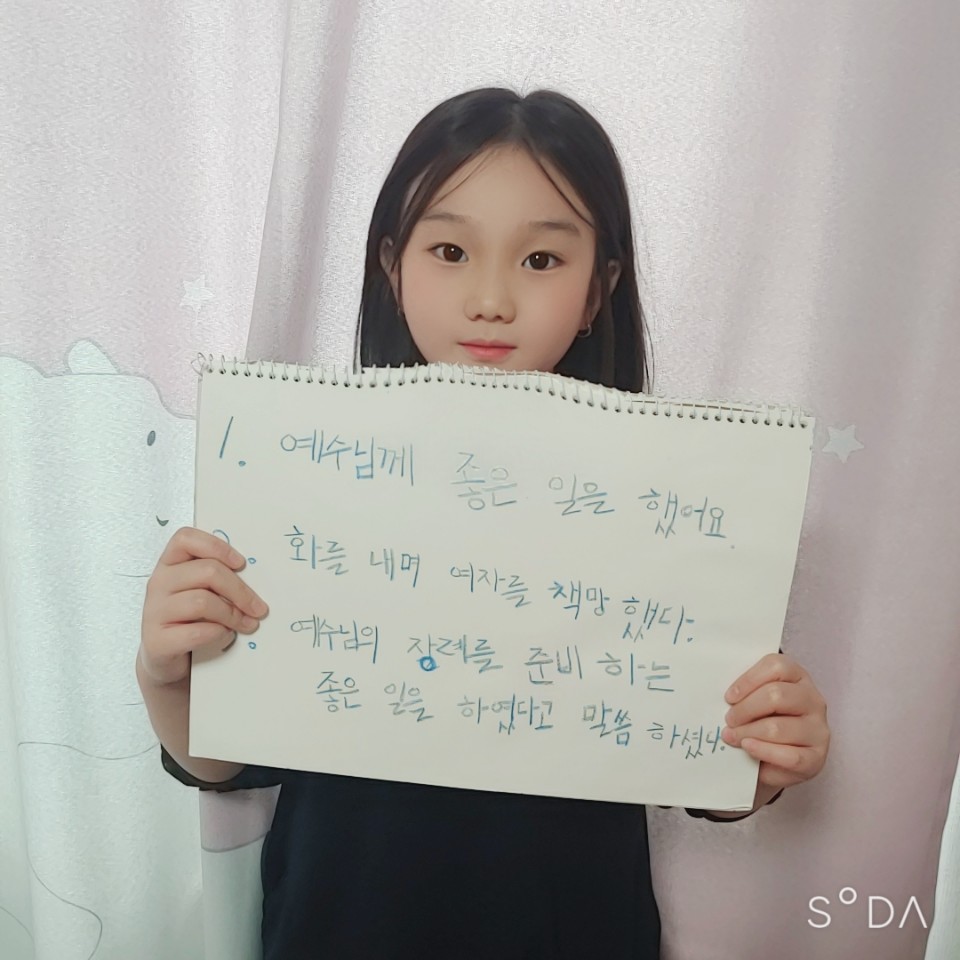 1. 예수님께 좋은 일을 했어요.
2. 화를 내며 여자를 책망 했다.
. 예수님의 장례를 준비 하는
좋은 일을 하였다고 말씀 하셨다.
SODA